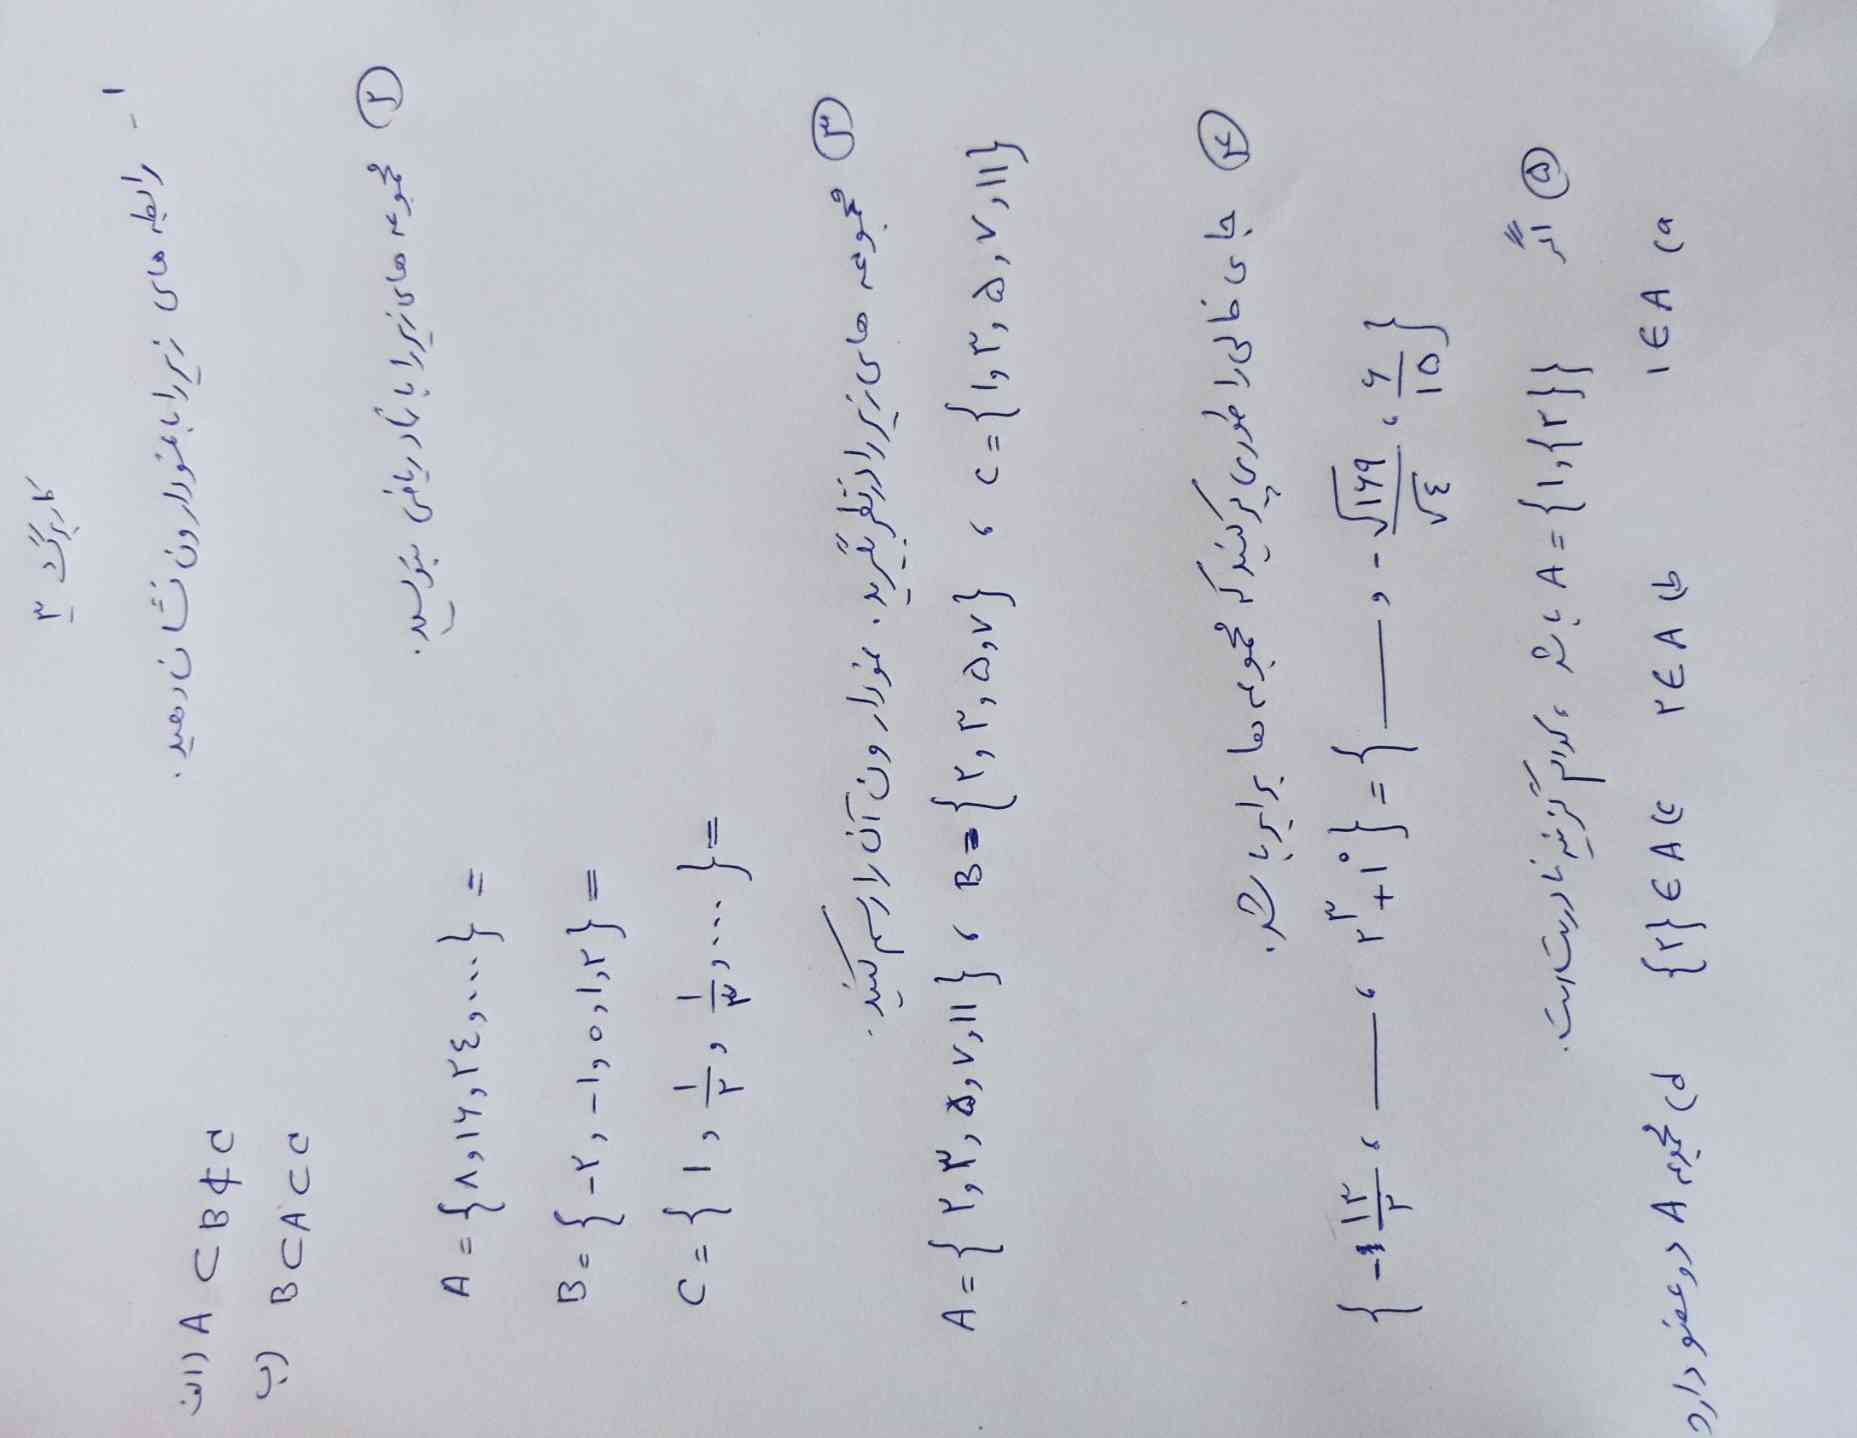 کاربرگ ۳
۱- رابطه های زیر را با نمودار ون نشان دهید.
الف) A ⊂ B ⊄ C
ب) B ⊂ A ⊂ C
۲ مجموعه های زیر را با نماد ریاضی بنویسید.
A = {۸, ۱۶, ۲۴, ...} =
B = {-۲, -۱, ۰, ۱, ۲} =
C = {۱, ۱/۲, ۱/۳, ...} =
۳ مجموعه های زیر را در نظر بگیرید. نمودار ون آن را رسم کنید.
A = {۲, ۳, ۵, ۷, ۱۱} ، B = {۲, ۳, ۵, ۷} ، C = {۱, ۳, ۵, ۷, ۱۱}
۴ جای خالی را طوری پر کنید که مجموعه ها برابر باشد.
{-۱۳/۲ ، ___ ، ۲^۳+۱^۰} = {___ , -√۱۶۹/√۴ ، ۶/۱۵}
۵ اگر A = {۱, {۲}} باشد ، کدام گزینه نادرست است.
a) ۱ ∈ A b) ۲ ∈ A c) {۲} ∈ A d) مجموعه A دو عضو دارد